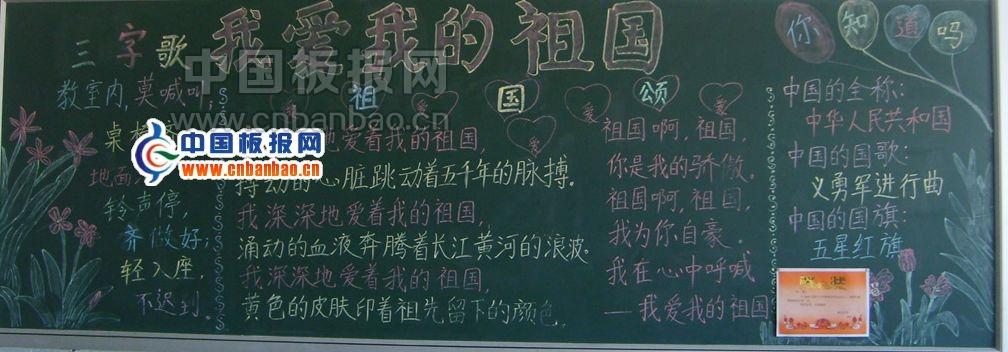 我爱我的祖国
三字歌
教室内,莫喊叫;
桌
地面
铃声停,
齐做好;
轻入座,
不迟到.
祖国颂
爱 爱 爱 爱
地爱着我的祖国,
搏动的心脏跳动着五千年的脉搏.
我深深地爱着我的祖国,
涌动的血液奔腾着长江黄河的浪波.
我深深地爱着我的祖国,
黄色的皮肤印着祖先留下的颜色.
祖国啊,祖国
你是我的骄傲.
祖国啊,祖国,
我为你自豪.
我在心中呼喊
——我爱我的祖国
你知道吗
中国的全称:
中华人民共和国
中国的国歌:
义勇军进行曲.
中国的国旗:
五星红旗
奖状
中国板报网
www.cnbanbao.cn
中国板报网
www.cnbanbao.cn